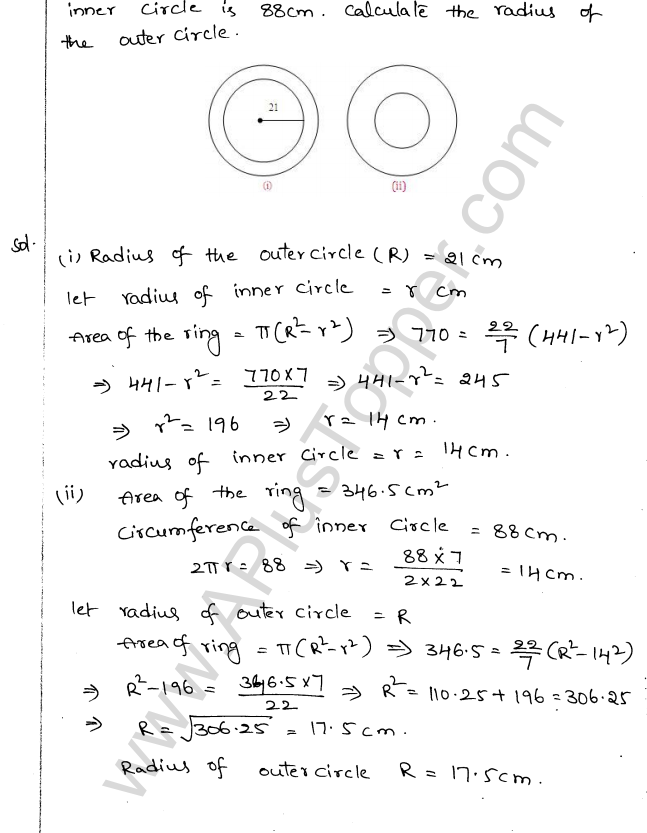 inner circle is 88cm. Calculate the radius of
the outer circle.
21
(i) (ii)
Sol. (i) Radius of the outer circle (R) = 21 cm
let radius of inner circle = r cm
Area of the ring = π(R²-r²) ⇒ 770 = 22/7 (441-r²)
⇒ 441-r² = 770×7/22 ⇒ 441-r² = 245
⇒ r² = 196 ⇒ r = 14 cm.
radius of inner circle = r = 14cm.
(ii) Area of the ring = 346.5cm²
Circumference of inner Circle = 88cm.
2πr = 88 ⇒ r = 88×7/2×22 = 14cm.
let radius of outer circle = R
Area of ring = π(R²-r²) ⇒ 346.5 = 22/7 (R²-14²)
⇒ R²-196 = 346.5×7/22 ⇒ R² = 110.25+196 = 306.25
⇒ R = √306.25 = 17.5cm.
Radius of outer circle R = 17.5cm.
www.APlusTopper.com